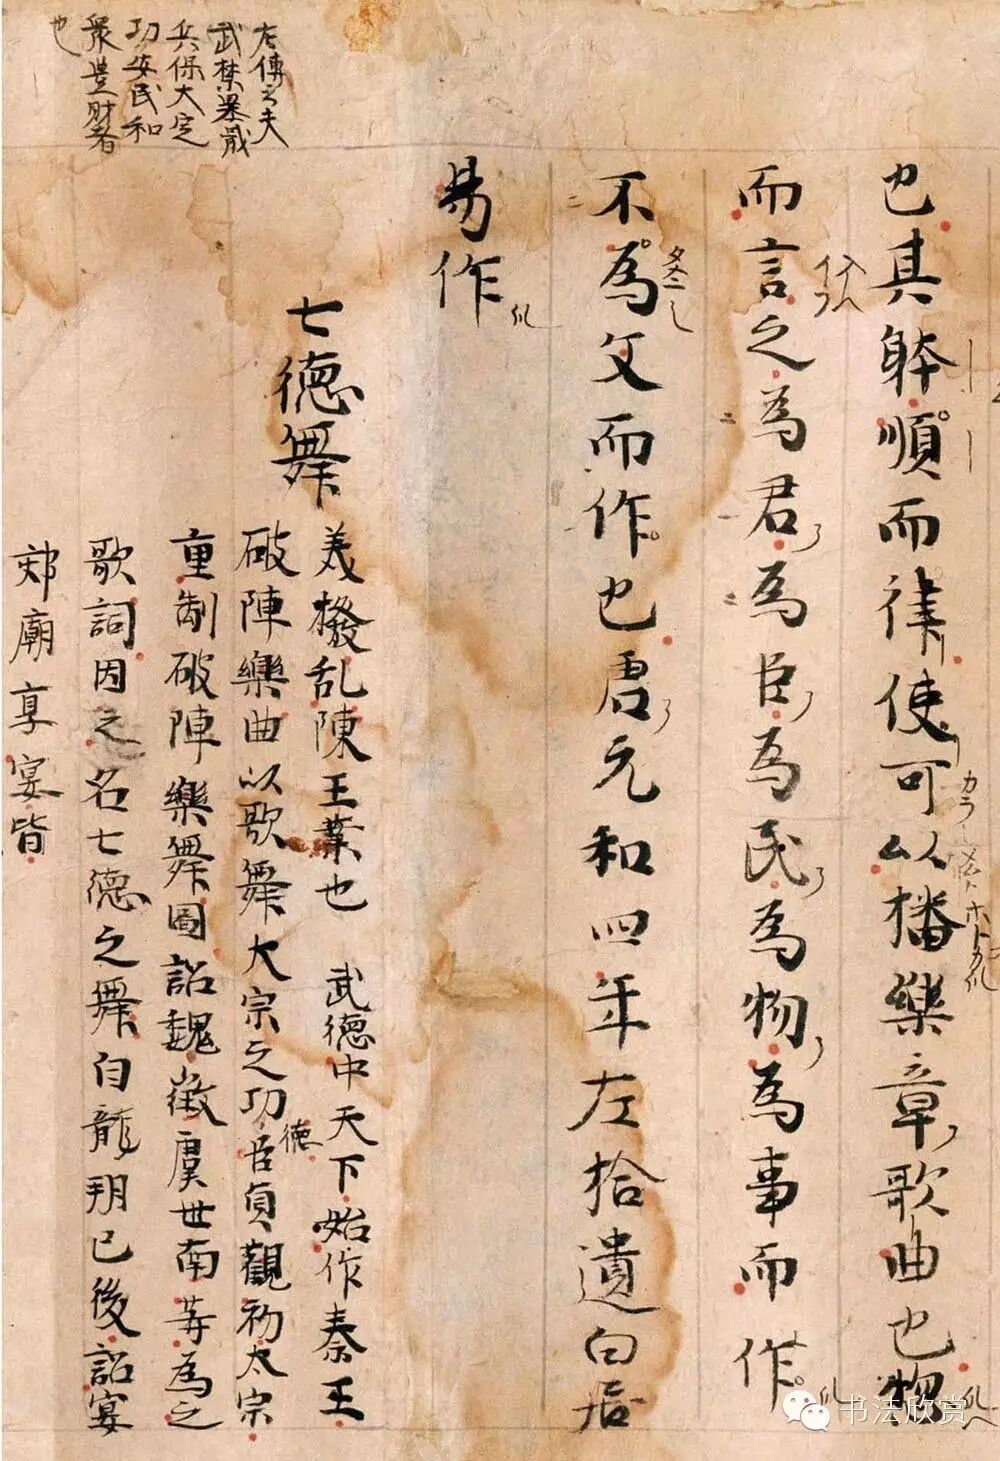 也其躰順而律使可以播樂章歌曲也物
而言之為君為臣為民為物為事而作
不為文而作也君元和四年左拾遺白居
易作
七德舞
美撥乱陳王業也 武德中天下始作秦王
破陣樂曲以歌舞大宗之功德臣貞觀初太宗
重制破陣樂舞圖詔魏徵虞世南等為之
歌詞因之名七德之舞自龍朔已後詔宴
郊廟享宴皆
左傳云夫
武禁暴戢
兵保大定
功安民和
衆豊財者
也
书法欣赏